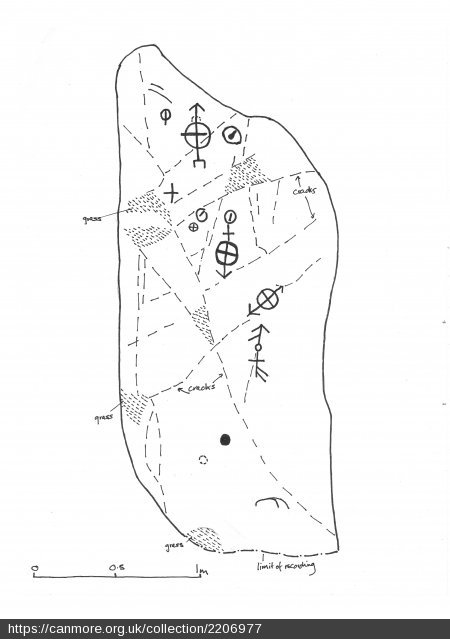 cracks
grass
cracks
grass
grass
limit of recording
0 0.5 1m
https://canmore.org.uk/collection/2206977